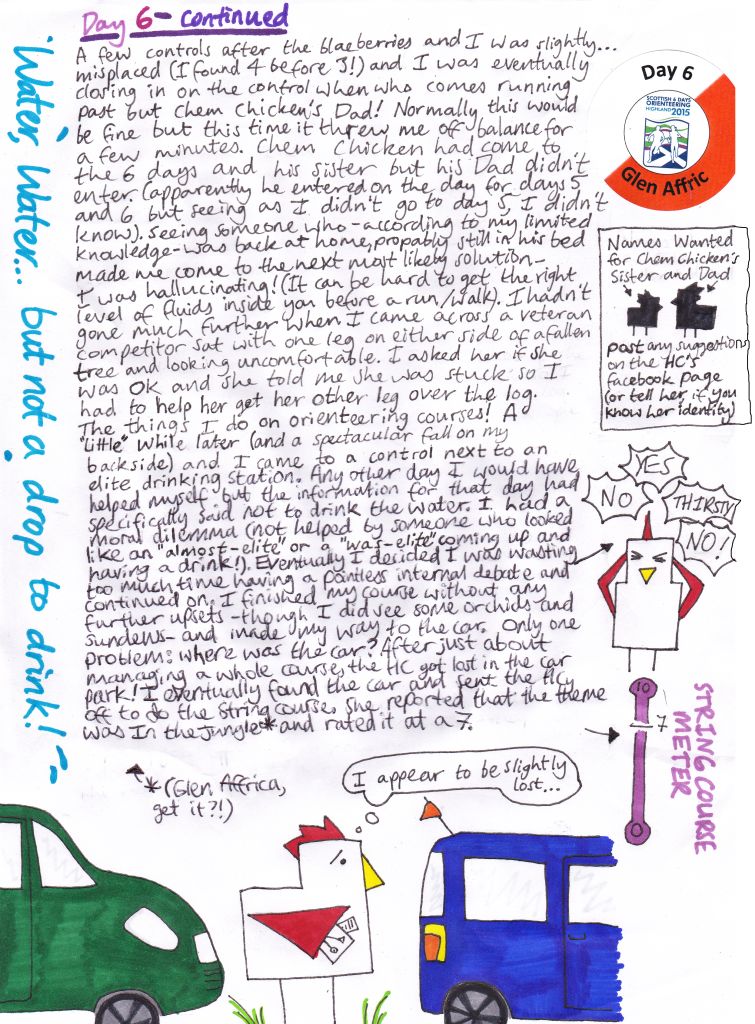 Day 6 - continued
A few controls after the blaeberries and I was slightly...
misplaced (I found 4 before 3!) and I was eventually
closing in on the control when who comes running
past but Chem Chicken's Dad! Normally this would
be fine but this time it threw me off balance for
a few minutes. Chem Chicken had come to
the 6 days and his sister but his Dad didn't
enter. (apparently he entered on the day for days 5
and 6 but seeing as I didn't go to day 5, I didn't
know). Seeing someone who - according to my limited
knowledge - was back at home, propably still in his bed
made me come to the next most likely solution -
I was hallucinating! (It can be hard to get the right
level of fluids inside you before a run/walk). I hadn't
gone much further when I came across a veteran
competitor sat with one leg on either side of a fallen
tree and looking uncomfortable. I asked her if she
was OK and she told me she was stuck so I
had to help her get her other leg over the log.
The things I do on orienteering courses! A
"little" while later (and a spectacular fall on my
backside) and I came to a control next to an
elite drinking station. Any other day I would have
helped myself but the information for that day had
specifically said not to drink the water. I had a
moral dilemma (not helped by someone who looked
like an "almost-elite" or a "was-elite" coming up and
having a drink!). Eventually I decided I was wasting
too much time having a pointless internal debate and
continued on. I finished my course without any
further upsets - though I did see some orchids and
sundews - and made my way to the car. Only one
problem: where was the car? After just about
managing a whole course, the HC got lost in the car
park! I eventually found the car and sent the HCy
off to do the String course. She reported that the theme
was In the Jungle* and rated it at a 7.
*(Glen Africa,
get it?!)
'Water, Water... but not a drop to drink!'
Day 6
SCOTTISH 6 DAYS
ORIENTEERING
HIGHLAND 2015
Glen Affric
Names Wanted
for Chem Chicken's
Sister and Dad
post any suggestions
on the HC's
Facebook Page
(or tell her, if you
know her identity)
YES
NO
THIRSTY
NO!
10
7
0
STRING COURSE
METER
I appear to be slightly
lost...